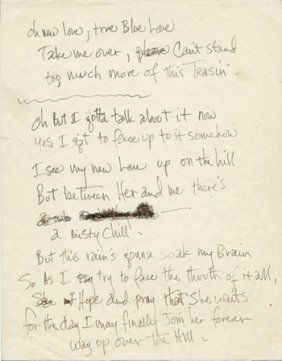 oh new love, true Blue Love
Take me over, Can't stand
too much more of this Teasin'
Oh But I gotta talk about it now
yes I got to face up to it somehow
I see my new Love up on the hill
But between Her and me there's
a misty Chill.
But this rain's gonna soak my Brain
So As I try to face the truth of it all,
Hope and pray that She waits
for the day I may finally Join her forever
way up over the Hill.